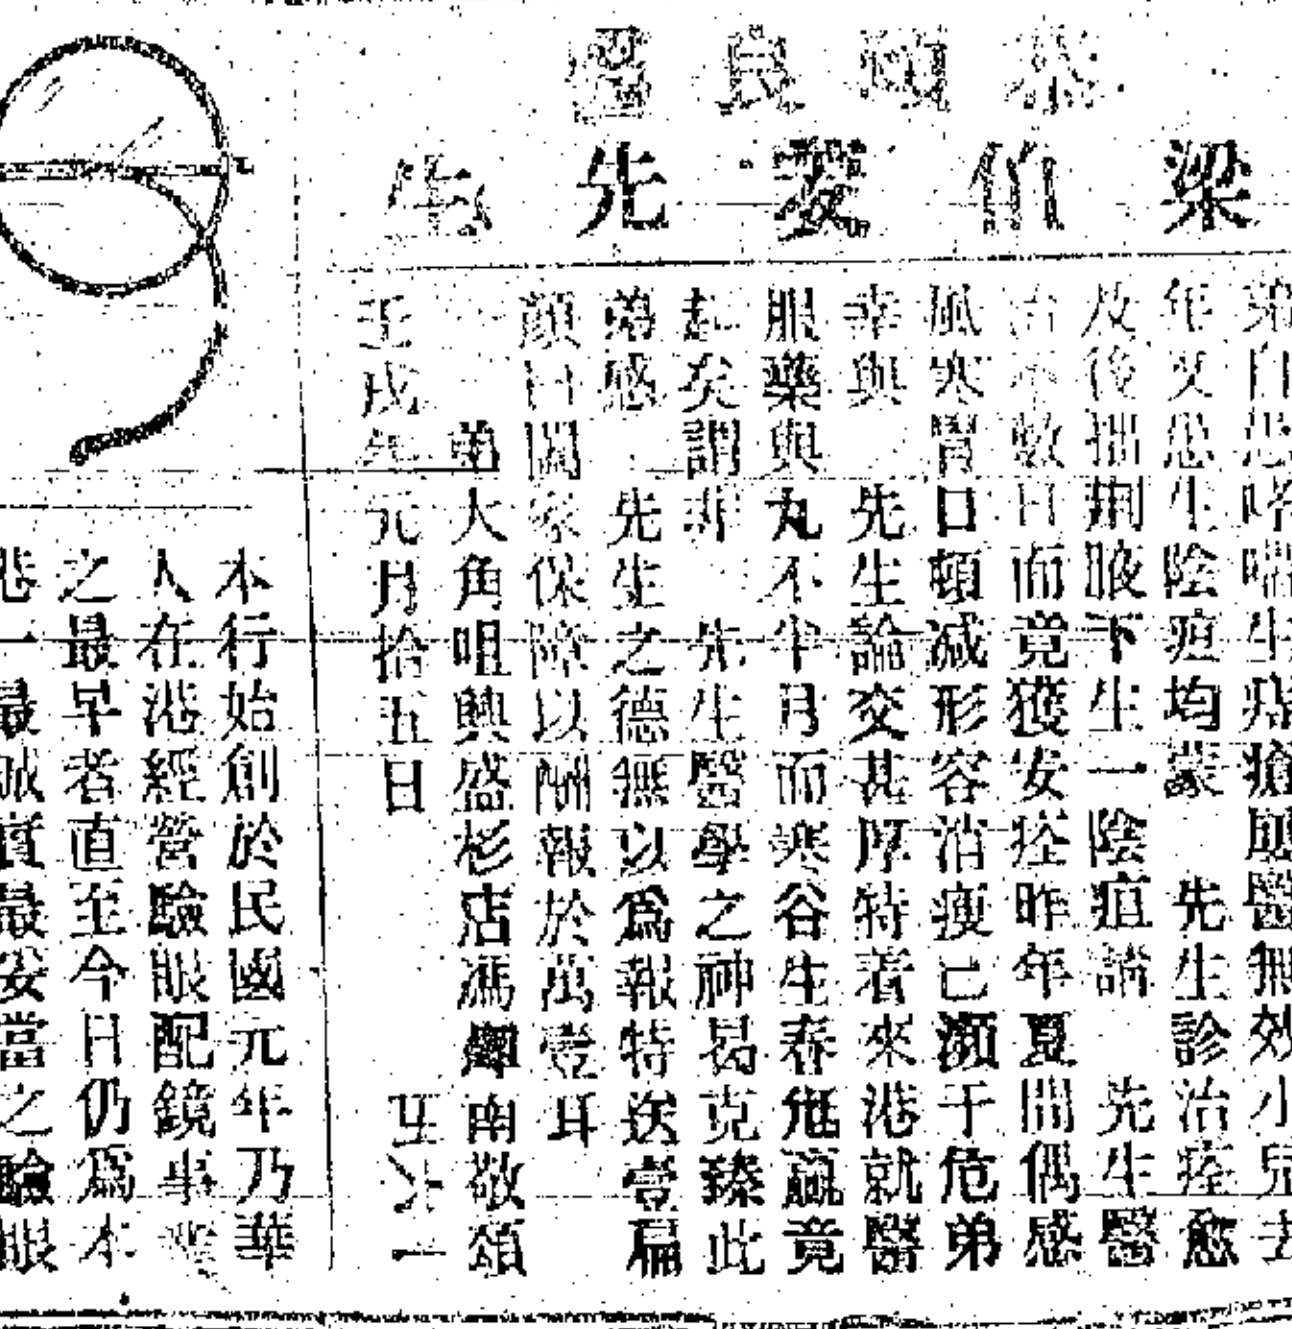 恭頌良醫
梁伯 先生
弟自患咯喘生痔瘡 醫無效小兒去
年又患生陰疽均蒙 先生診治痊愈
及後拙荆腋下生一陰疽請 先生醫
治不數日而竟獲安痊昨年夏間偶感
風寒胃口頓减形容消瘦已瀕于危弟
幸與 先生論交甚厚特着來港就醫
服藥與丸不半月而寒谷生春尫羸竟
起矣謂非 先生醫學之神曷克臻此
弟感 先生之德無以爲報特送壹扁
顏曰闔家保障以酬報於萬壹耳
弟大角咀興盛杉店馮 南敬頌
壬戌年元月拾五日
本行始創於民國元年乃華
人在港經營驗眼配鏡事業
之最早者直至今日仍爲本
港一最誠實最妥當之驗眼